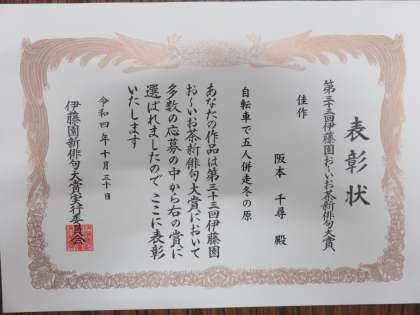 表彰状
第三十三回伊藤園お〜いお茶新俳句大賞
佳作
阪本 千尋 殿
自転車で五人併走冬の原
あなたの作品は第三十三回伊藤園
お〜いお茶新俳句大賞において
多数の応募の中から右の賞に
選ばれましたので ここに表彰
いたします
令和四年十月三十日
伊藤園新俳句大賞実行委員会